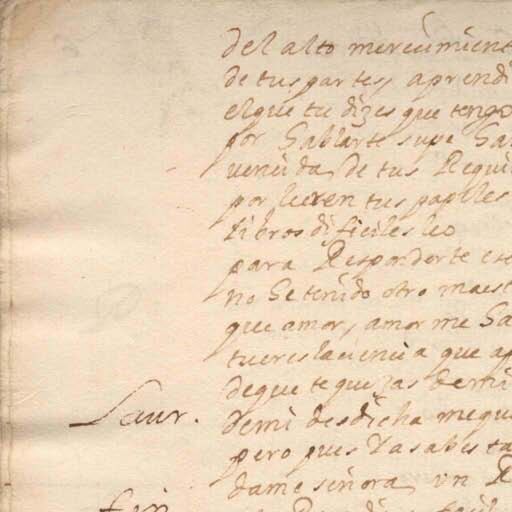 del alto mereçimient
de tus partes, aprendi
el que tu dizes que tengo
por hablarte supe ha
vençida de tus Requi
por leer en tus papeles
libros dificiles leo
para Responderte es
no he tenido otro maest
que amor, amor me ha
tu eres la çiençia que ap
de que te quejas de mi
Laur. de mi desdicha me que
pero pues ya sabes ta
dame señora un R